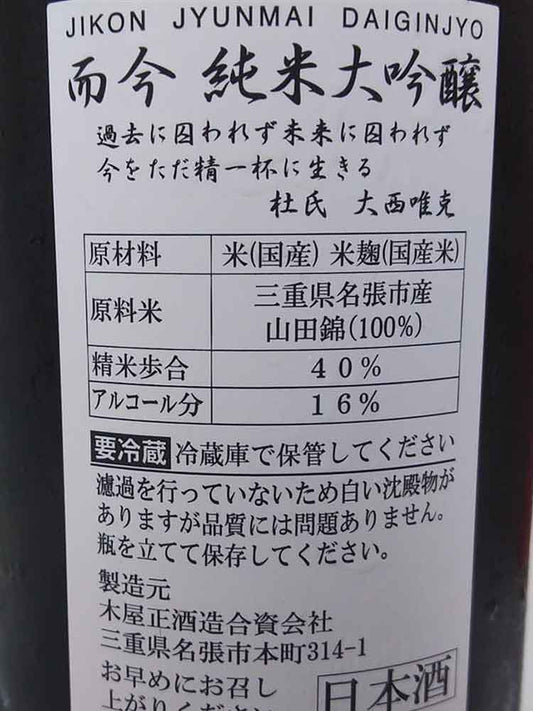 JIKON JYUNMAI DAIGINJYO
而今 純米大吟醸
過去に囚われず未来に囚われず
今をただ精一杯に生きる
杜氏 大西唯克
原材料 米(国産) 米麹(国産米)
原料米 三重県名張市産
山田錦(100%)
精米歩合 40%
アルコール分 16%
要冷蔵 冷蔵庫で保管してください
濾過を行っていないため白い沈殿物が
ありますが品質には問題ありません。
瓶を立てて保存してください。
製造元
木屋正酒造合資会社
三重県名張市本町314-1
お早めにお召し
上がりください
日本酒